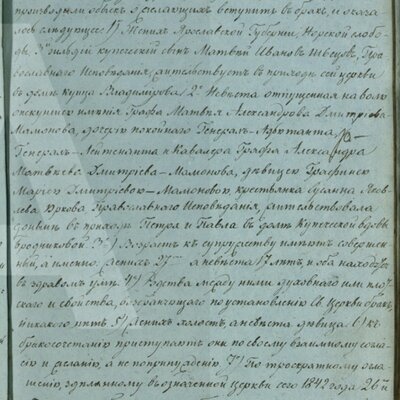 производили обыск о желающих вступить в брак, и оказа
лось следующее: 1) Жених Ярославской Губернии, Норской слобо-
ды, 3й гильдии купеческий сын Матвей Иванов Швецов, Пра
вославного Исповедания, жительствует в приходе сей церкви
в доме купца Владимирова 2е Невеста отпущенная на волю
опекуншею имения Графа Матвея Александрова Дмитриева
Мамонова, дочерью покойного Генерал-Адъютанта
Генерал-Лейтенанта и Кавалера Графа Александра
Матвеева Дмитриева-Мамонова, девицею Графинею
Мариею Дмитриевою-Мамоновою, крестьянка Яков
лева Православного Исповедания, жительствовала
доныне в приходе Петра и Павла в доме Купеческой вдовы
Бродниковой 3е) Возраст к супружеству имеют совершен
ный, а именно: жених 27 а невеста 17 лет, и оба находятся
в здравом уме. 4е) Родства между ними духовного или плот
ского и свойства, возбраняющего по установлению Св. Церкви брак,
никакого нет. 5е) Жених холост, а невеста девица. 6) к
бракосочетанию приступают они по своему взаимному согла
сию и желанию, а не по принуждению. 7е) По троекратному огла
шению, сделанному в означенной церкви сего 1842 года 26го